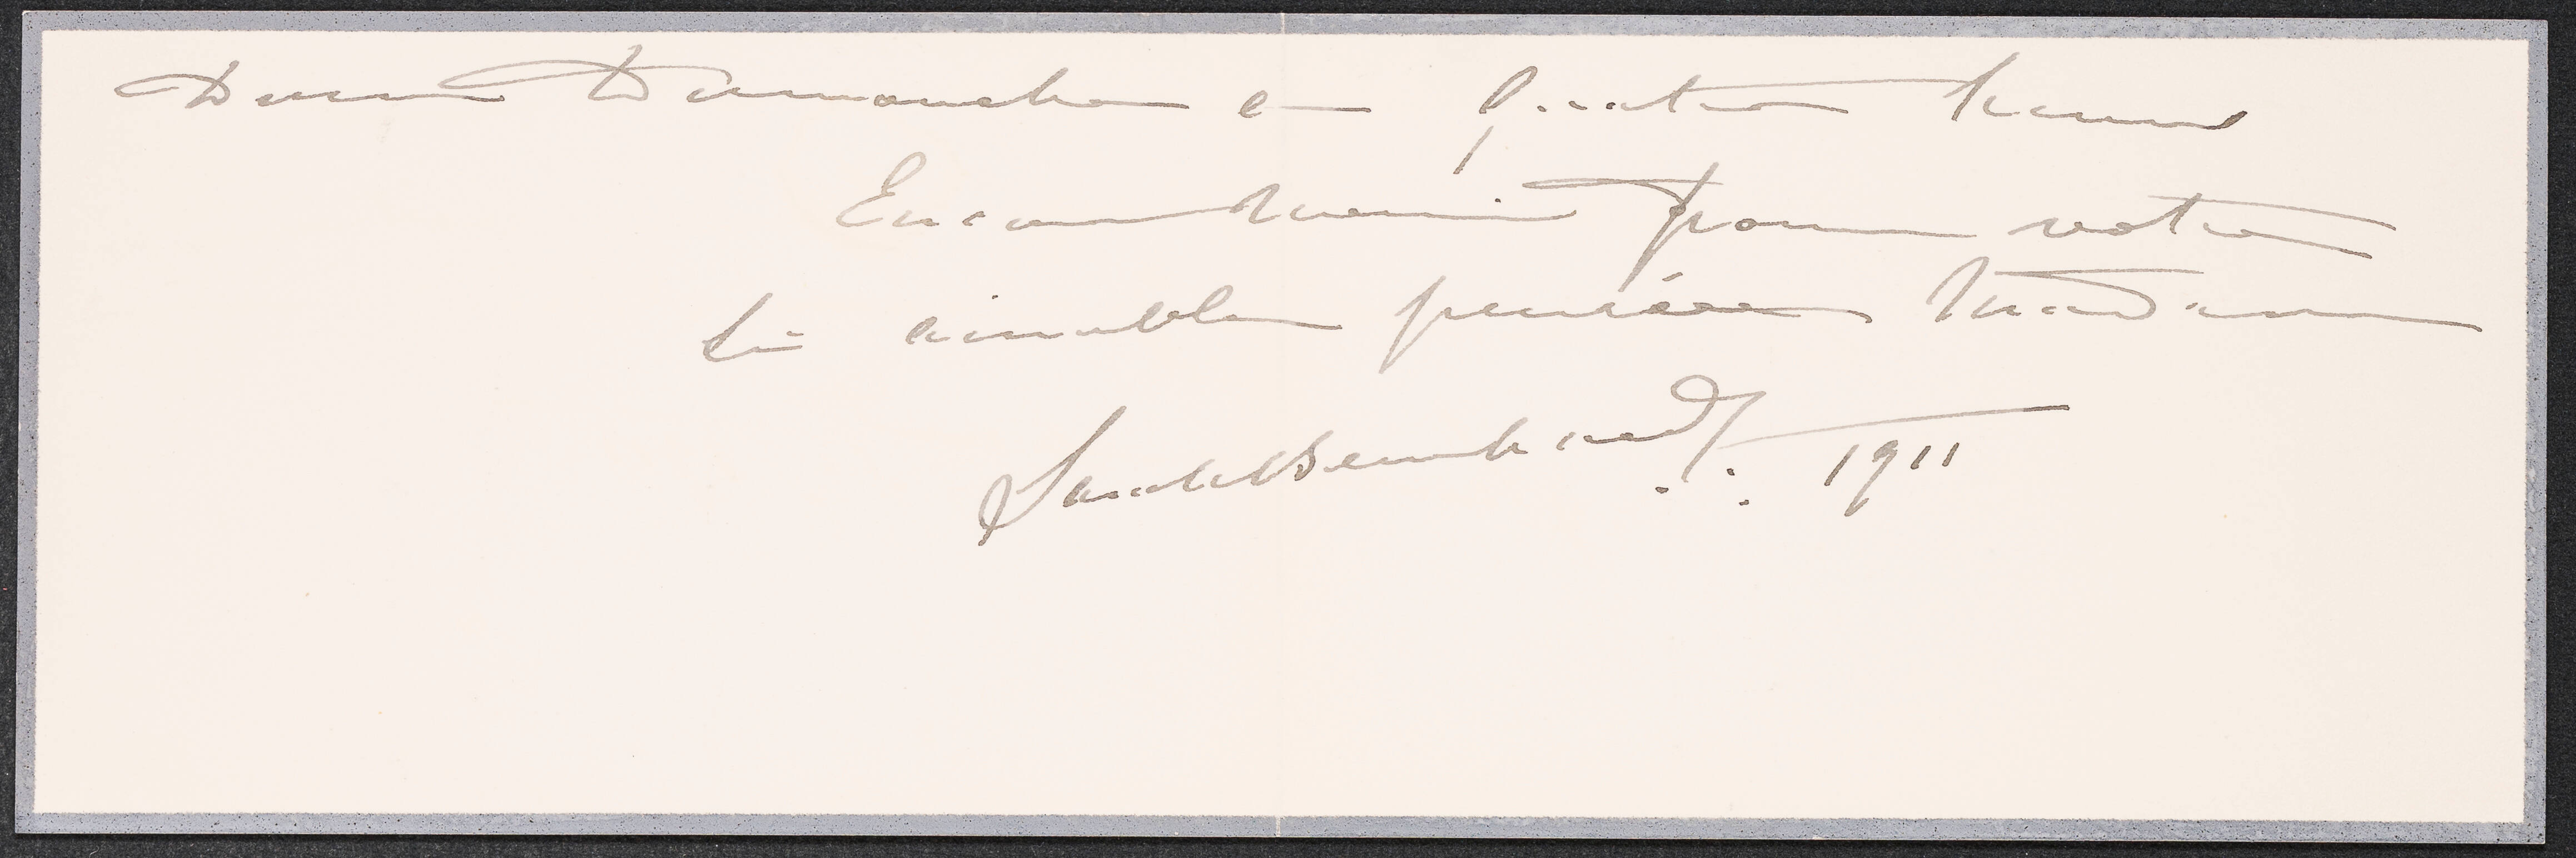 Dimanche a quatre heures
Encore merci pour votre
si aimable pensée Madame
Sarah Bernhardt 1911